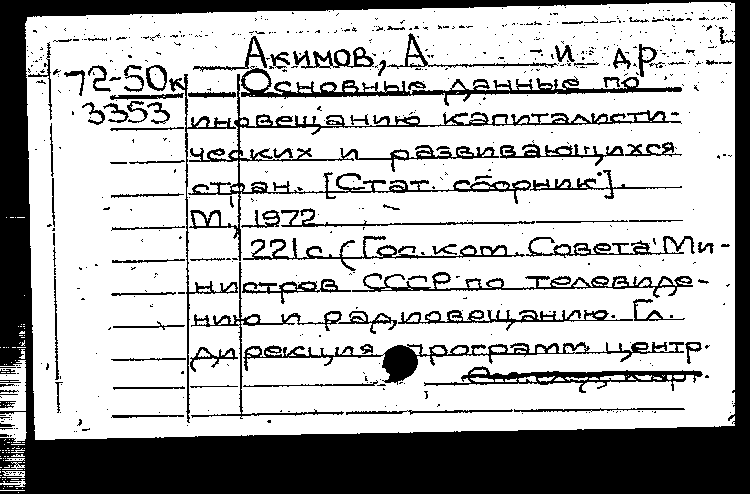 Акимов, А и др
72-50к Основные данные по
3353 иновещанию капиталисти-
ческих и развивающихся
стран. [Стат. сборник].
М., 1972.
221 с. (Гос. ком. Совета Ми-
нистров СССР по телевиде-
нию и радиовещанию. Гл.
дирекция программ центр.